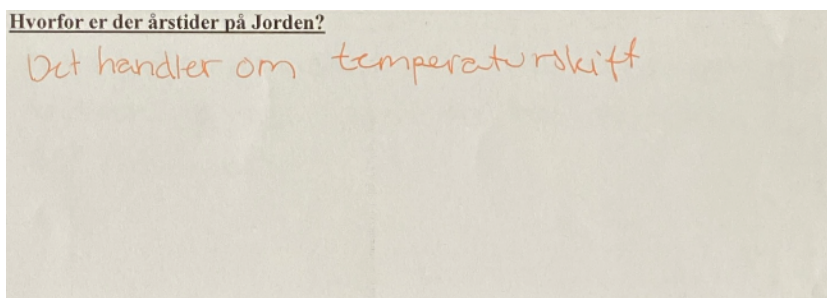 Hvorfor er der årstider på Jorden?
Det handler om temperaturskift